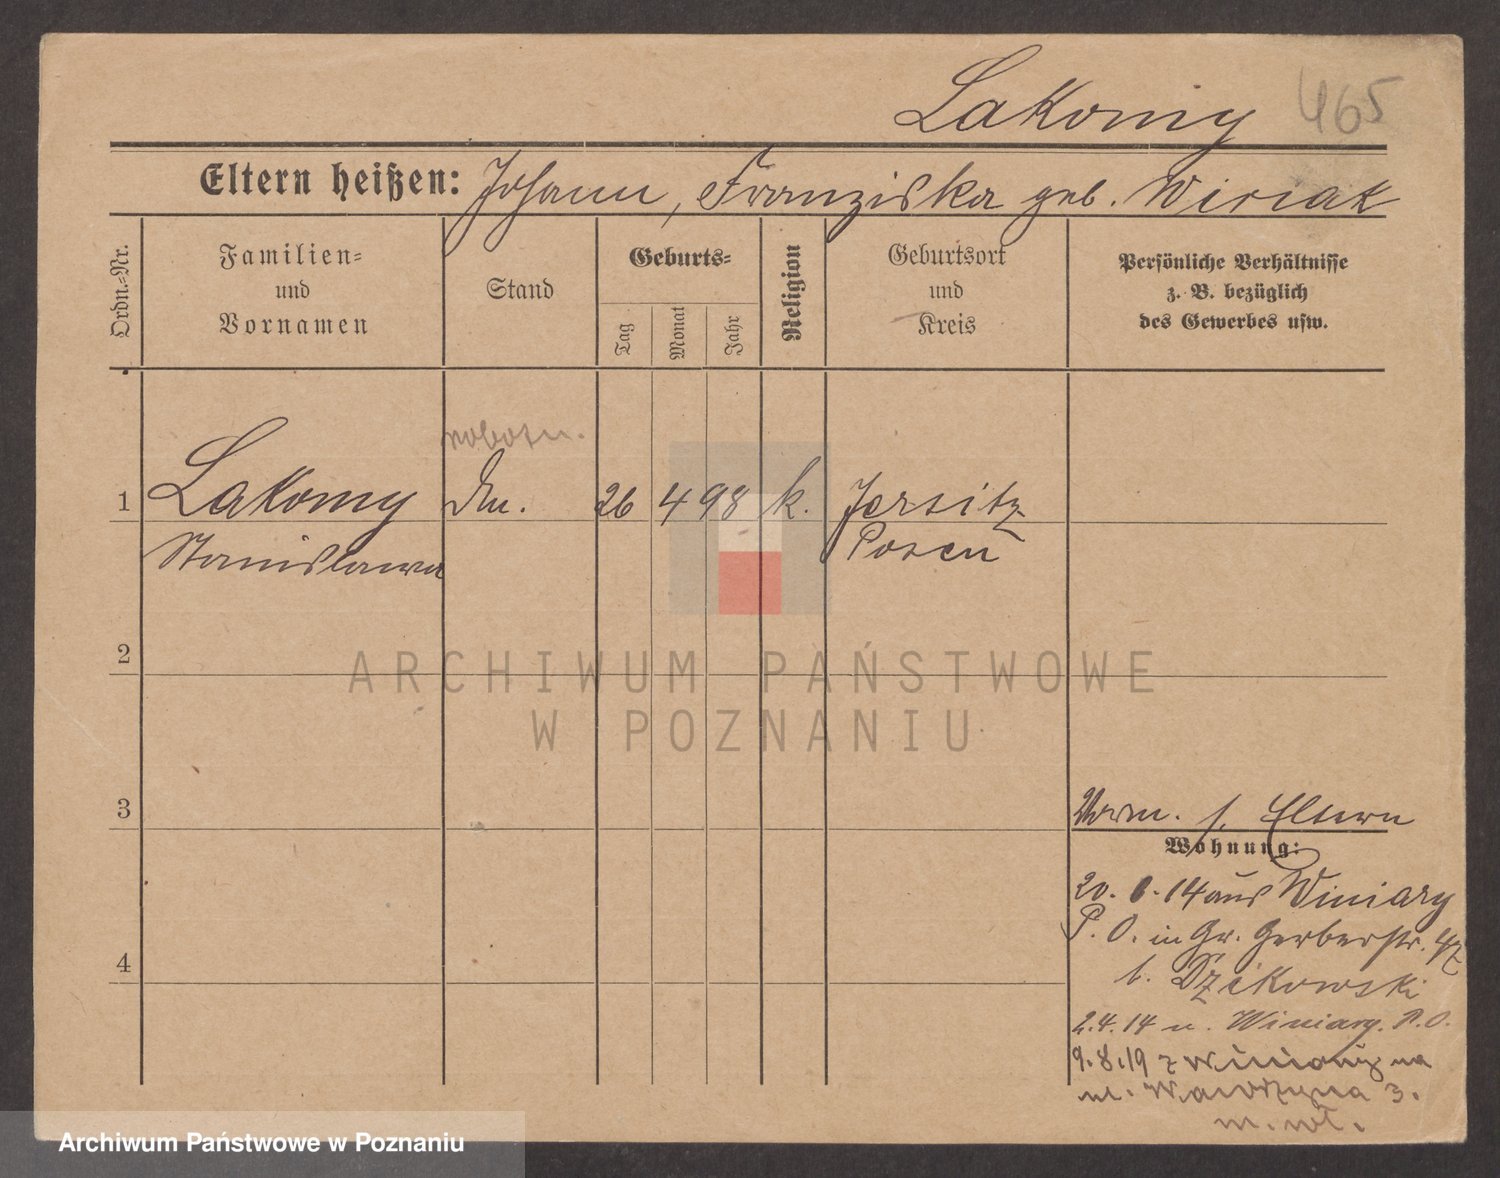 Lakomy 465
Eltern heißen: Johann, Franziska geb. Wiriak
Ordn.-Nr.
Familien-
und
Vornamen
Stand
Geburts-
Tag
Monat
Jahr
Religion
Geburtsort
und
Kreis
Persönliche Verhältnisse
z. B. bezüglich
des Gewerbes usw.
robotn.
1 Lakomy Dm. 26 4 98 k. Jersitz
Stanislawa Posen
2
3
4
Vorm. s. Eltern
Wohnung:
20. 1. 14 aus Winiary
P. O. in Gr. Gerberstr. 42
b. Dzikowski
2.4.14 n. Winiary P.O.
9.8.19 z Winiary na
ul. Wawrzyna 3.
ARCHIWUM PAŃSTWOWE
W POZNANIU
Archiwum Państwowe w Poznaniu